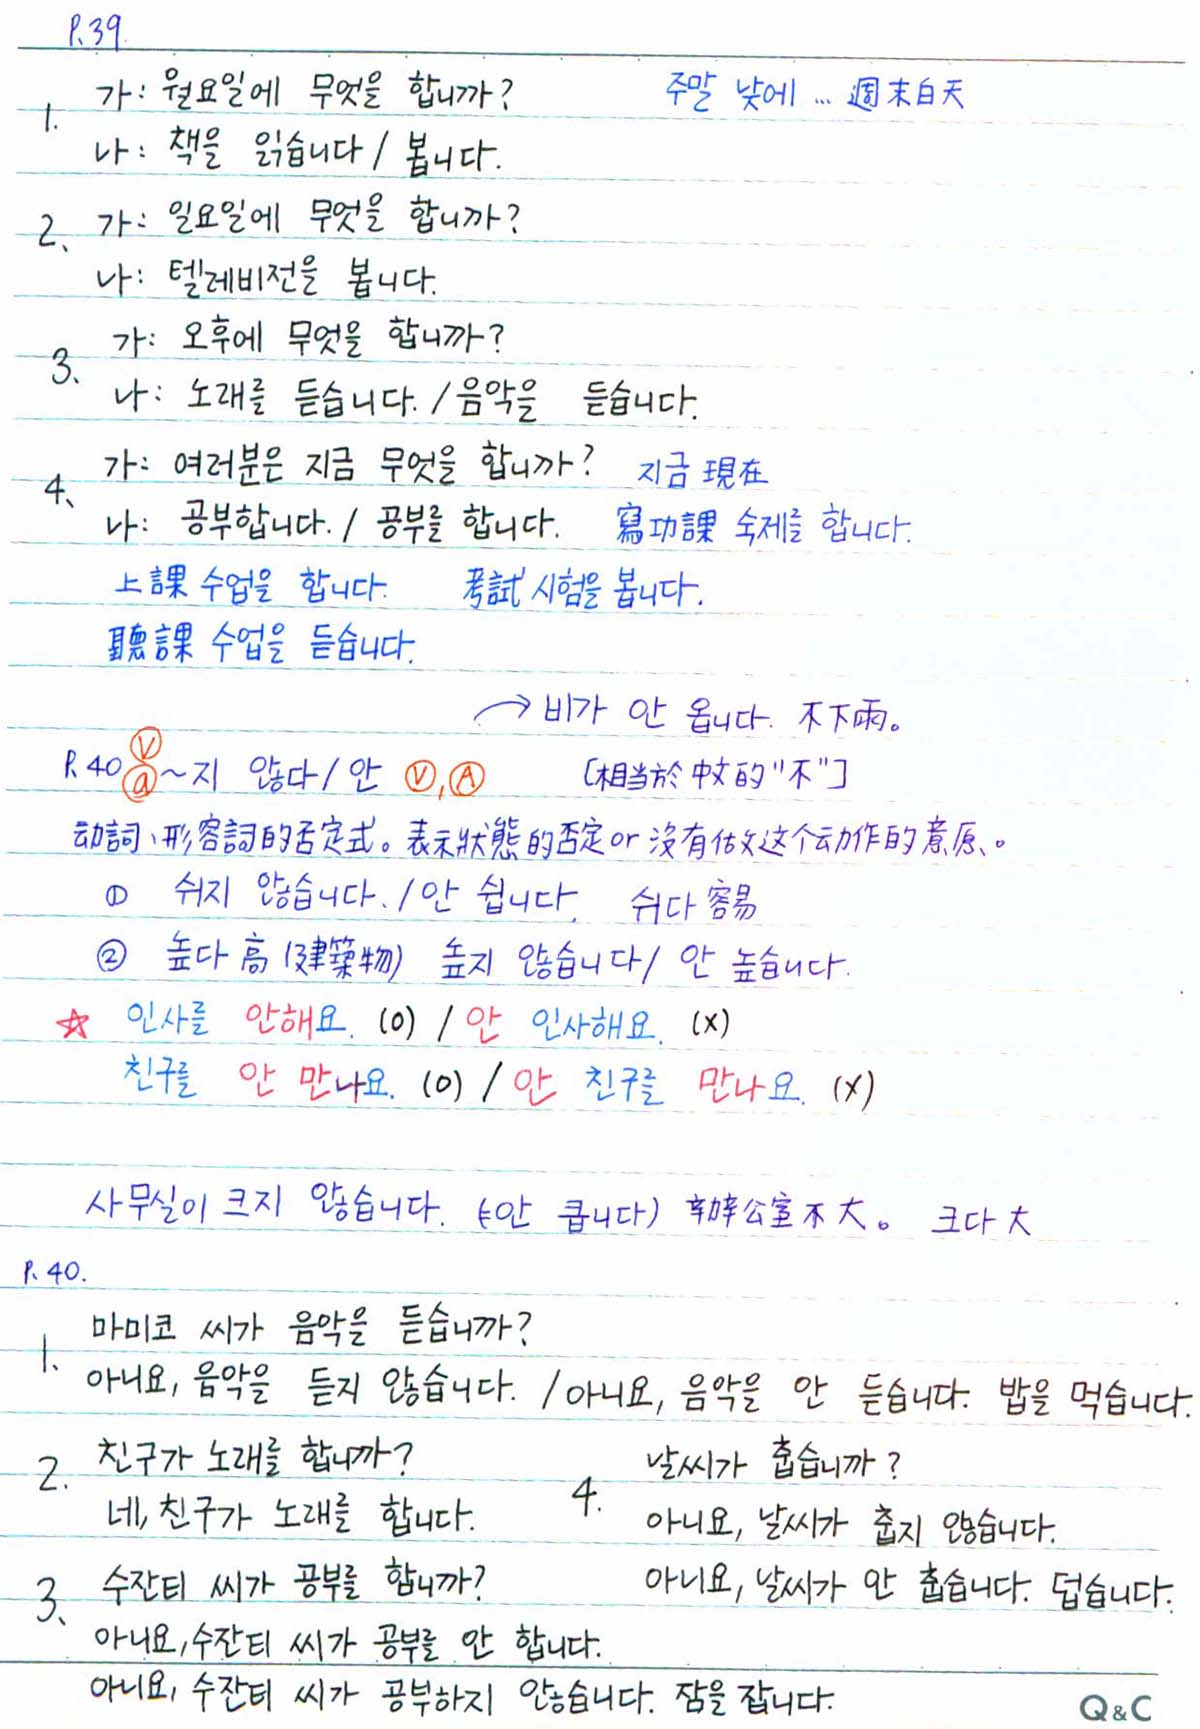 P.39
1. 가: 월요일에 무엇을 합니까? 주말 낮에 ... 週末白天
나: 책을 읽습니다 / 봅니다.
2、 가: 일요일에 무엇을 합니까?
나: 텔레비전을 봅니다.
3、 가: 오후에 무엇을 합니까?
나: 노래를 듣습니다. / 음악을 듣습니다.
4、 가: 여러분은 지금 무엇을 합니까? 지금 現在
나: 공부합니다. / 공부를 합니다. 寫功課 숙제를 합니다.
上課 수업을 합니다. 考試 시험을 봅니다.
聽課 수업을 듣습니다.
→ 비가 안 옵니다. 不下雨。
P.40 Ⓥ ⓐ ~지 않다 / 안 Ⓥ, Ⓐ [相当於中文的"不"]
动詞、形容詞的否定式。表示狀態的否定 or 沒有做这个动作的意愿。
① 쉬지 않습니다. / 안 쉽니다. 쉬다 容易
② 높다 高 (建築物) 높지 않습니다 / 안 높습니다.
☆ 인사를 안해요. (O) / 안 인사해요. (X)
친구를 안 만나요. (O) / 안 친구를 만나요. (X)
사무실이 크지 않습니다. (=안 큽니다) 辦公室不大。 크다 大
P. 40.
1. 마미코 씨가 음악을 듣습니까?
아니요, 음악을 듣지 않습니다. / 아니요, 음악을 안 듣습니다. 밥을 먹습니다.
2. 친구가 노래를 합니까?
네, 친구가 노래를 합니다.
3、 수잔티 씨가 공부를 합니까?
아니요, 수잔티 씨가 공부를 안 합니다.
아니요, 수잔티 씨가 공부하지 않습니다. 잠을 잡니다.
4. 날씨가 춥습니까?
아니요, 날씨가 춥지 않습니다.
아니요, 날씨가 안 춥습니다. 덥습니다.
Q&C